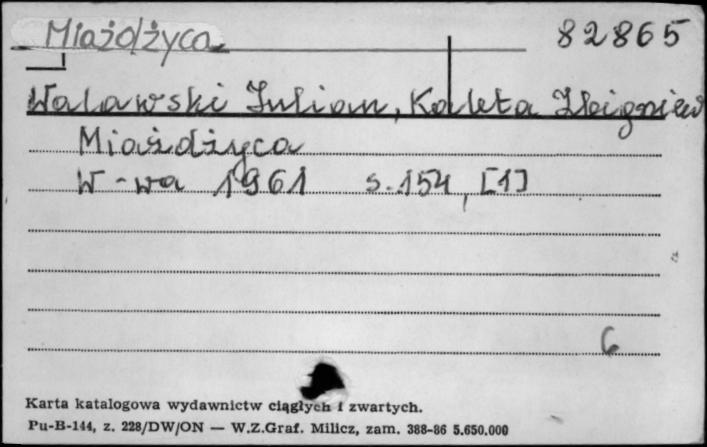 Miażdżyca 82865
Walawski Julian, Kaleta Zbigniew
Miażdżyca
W-wa 1961 s.154, [1]
6
Karta katalogowa wydawnictw ciągłych i zwartych.
Pu-B-144, z. 228/DW/ON — W.Z.Graf. Milicz, zam. 388-86 5.650.000